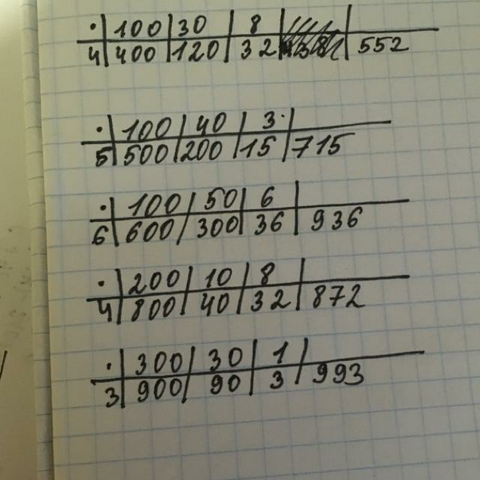 · 100 30 8
4 400 120 32 552
· 100 40 3
5 500 200 15 715
· 100 50 6
6 600 300 36 936
· 200 10 8
4 800 40 32 872
· 300 30 1
3 900 90 3 993